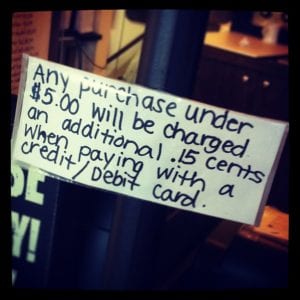 Any purchase under
$5.00 will be charged
an additional .15 cents
when paying with a
credit/Debit card.
Y!